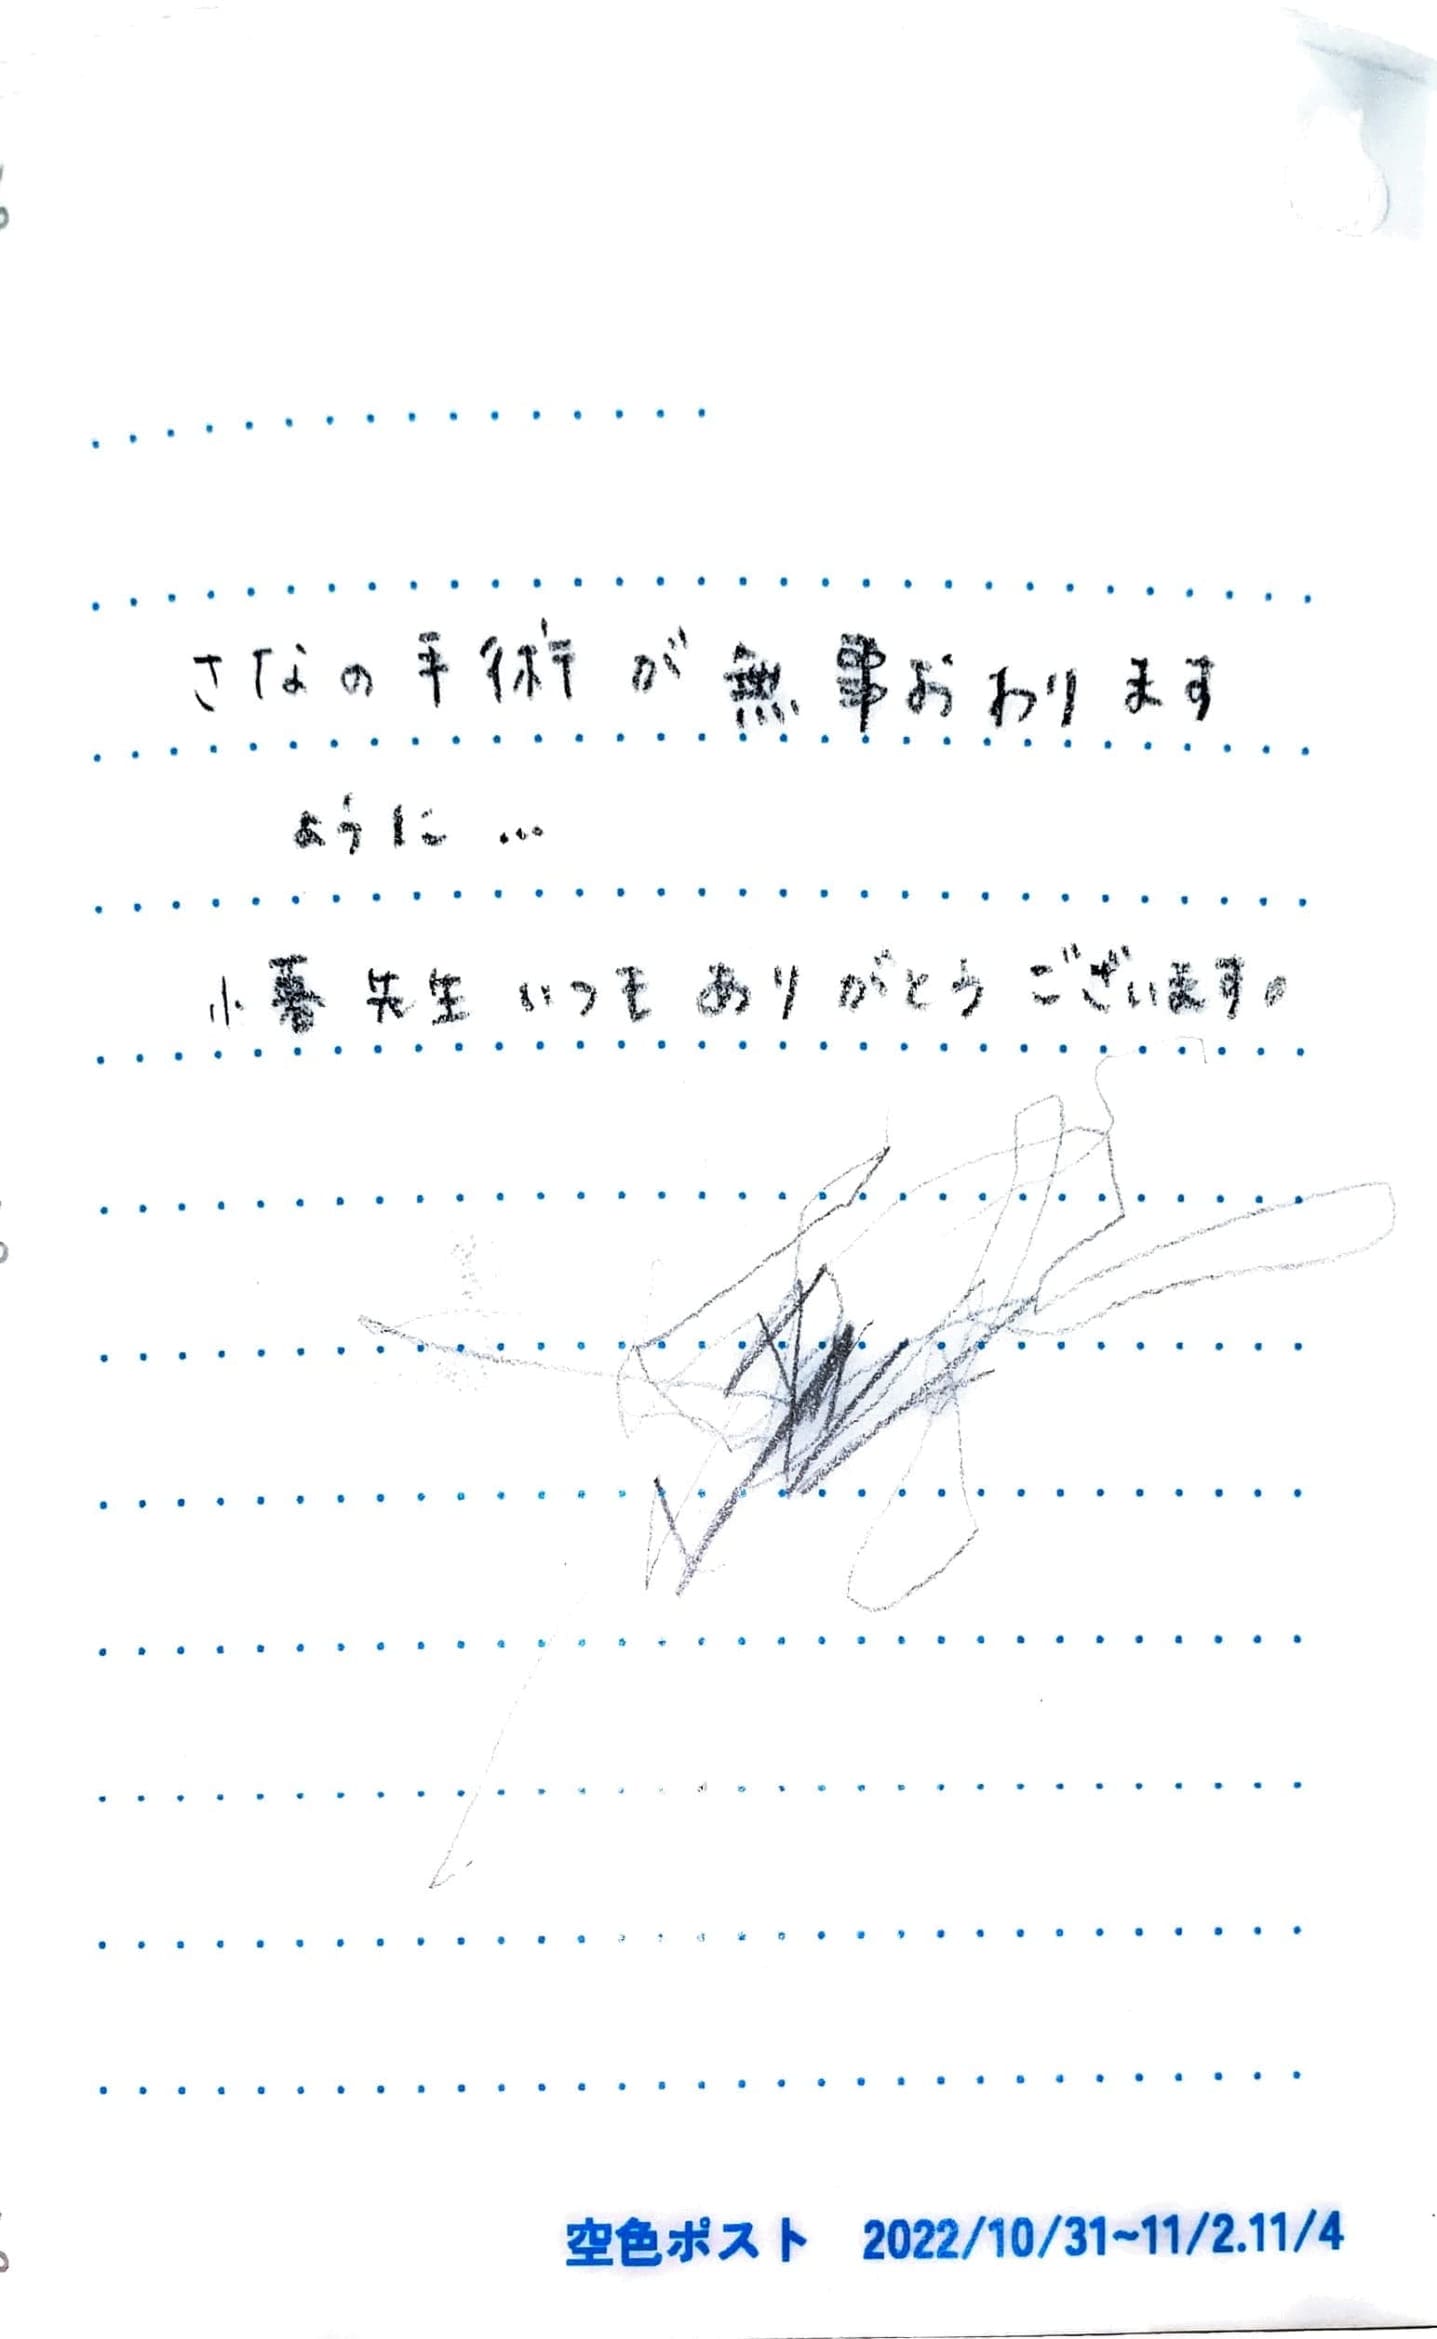 さなの手術が無事おわります
ように…
小暮先生いつもありがとうございます。
空色ポスト 2022/10/31~11/2.11/4